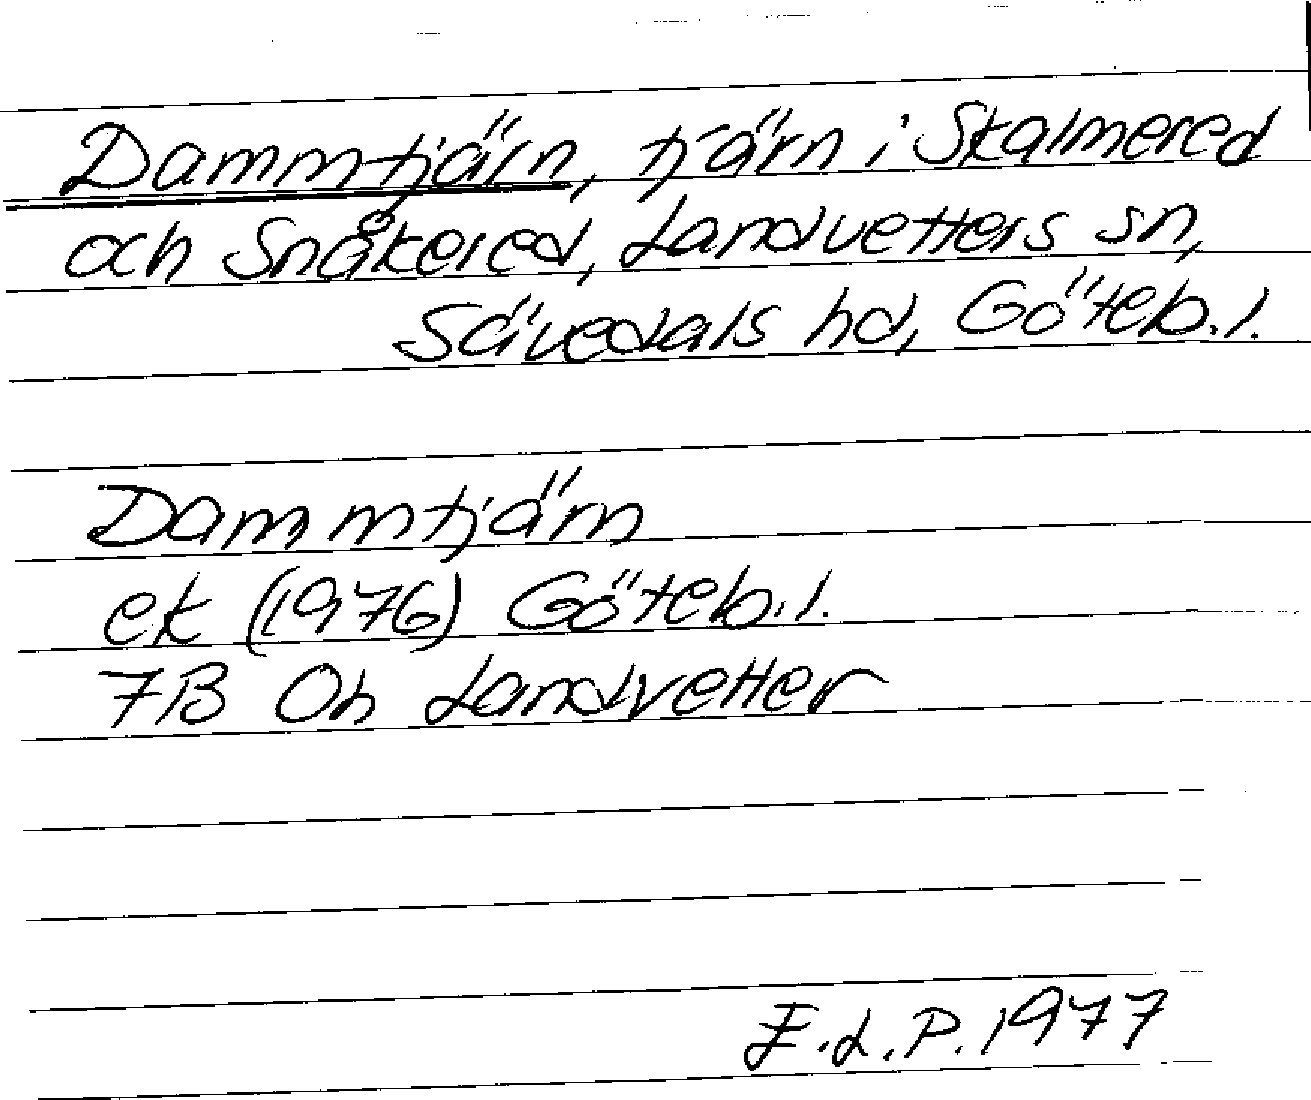 Dammtjärn, tjärn i Skalmered
och Snåkered, Landvetters sn,
Sävedals hd, Göteb.l.
Dammtjärn
ek (1976) Göteb.l.
7B 0h Landvetter
E.L.P. 1977